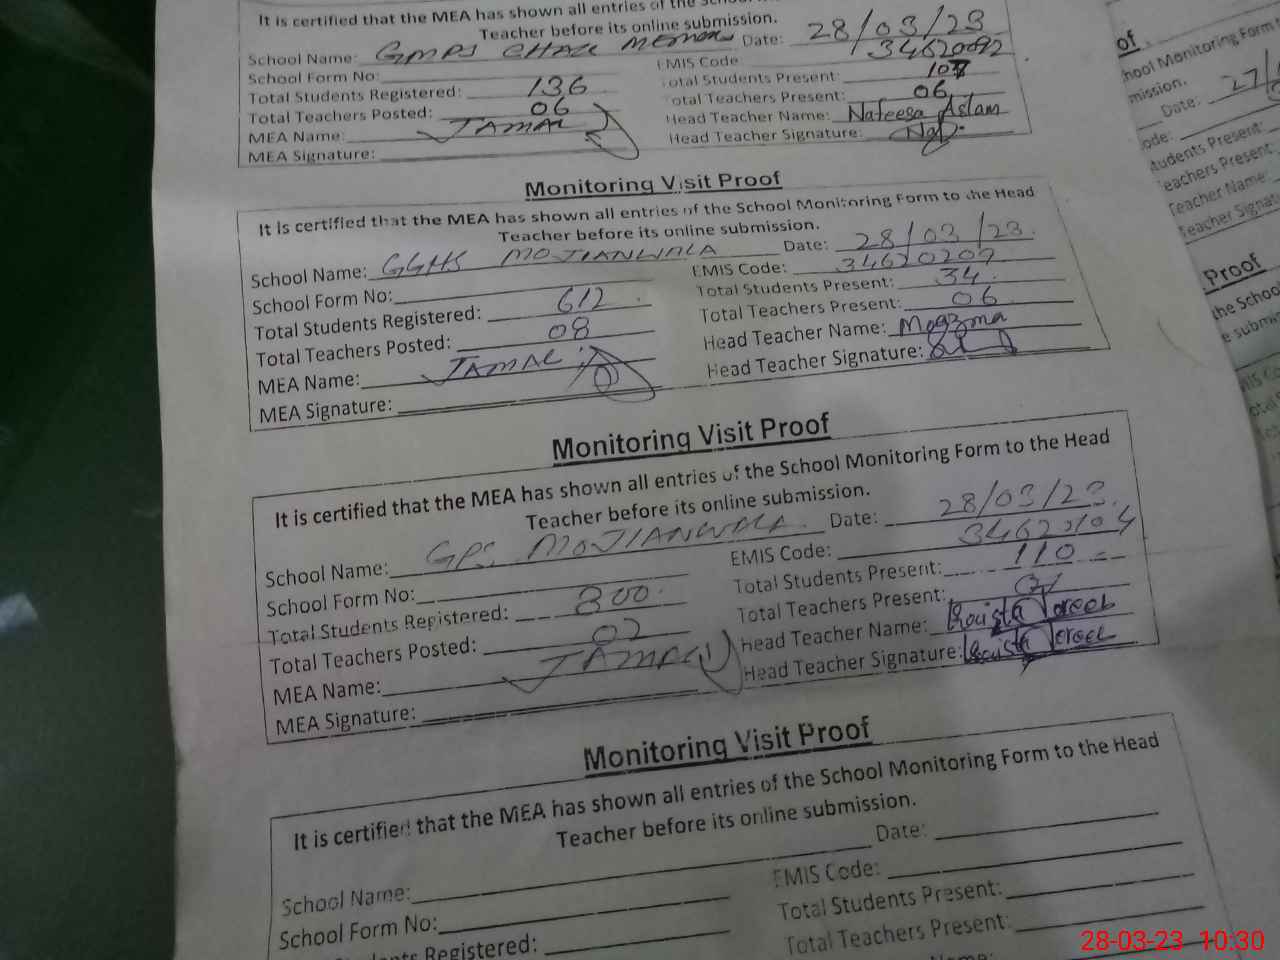 It is certified that the MEA has shown all entries of the School
Teacher before its online submission.
School Name: GMPS Date: 28/03/23
School Form No: EMIS Code 34620092
Total Students Registered: 136 Total Students Present: 107
Total Teachers Posted: 06 Total Teachers Present: 06
MEA Name: JAMAL Head Teacher Name: Nafeesa Aslam
MEA Signature: Head Teacher Signature:
Monitoring Visit Proof
It is certified that the MEA has shown all entries of the School Monitoring Form to the Head
Teacher before its online submission.
School Name: GGHS MOJIANWALA Date: 28/03/23
School Form No: EMIS Code: 34620207
Total Students Registered: 612 Total Students Present: 34
Total Teachers Posted: 08 Total Teachers Present: 06
MEA Name: JAMAL Head Teacher Name:
MEA Signature: Head Teacher Signature:
Monitoring Visit Proof
It is certified that the MEA has shown all entries of the School Monitoring Form to the Head
Teacher before its online submission.
School Name: GPS MOJIANWALA Date: 28/03/23
School Form No: EMIS Code: 34620104
Total Students Registered: 300 Total Students Present: 110
Total Teachers Posted: 02 Total Teachers Present:
MEA Name: JAMAL Head Teacher Name:
MEA Signature: Head Teacher Signature:
Monitoring Visit Proof
It is certified that the MEA has shown all entries of the School Monitoring Form to the Head
Teacher before its online submission.
School Name: Date:
School Form No: EMIS Code:
Registered: Total Students Present:
Total Teachers Present:
of
hool Monitoring Form
mission.
Date: 27/
ode:
tudents Present:
eachers Present:
Teacher Name:
Teacher Signat
Proof
the School
28-03-23 10:30